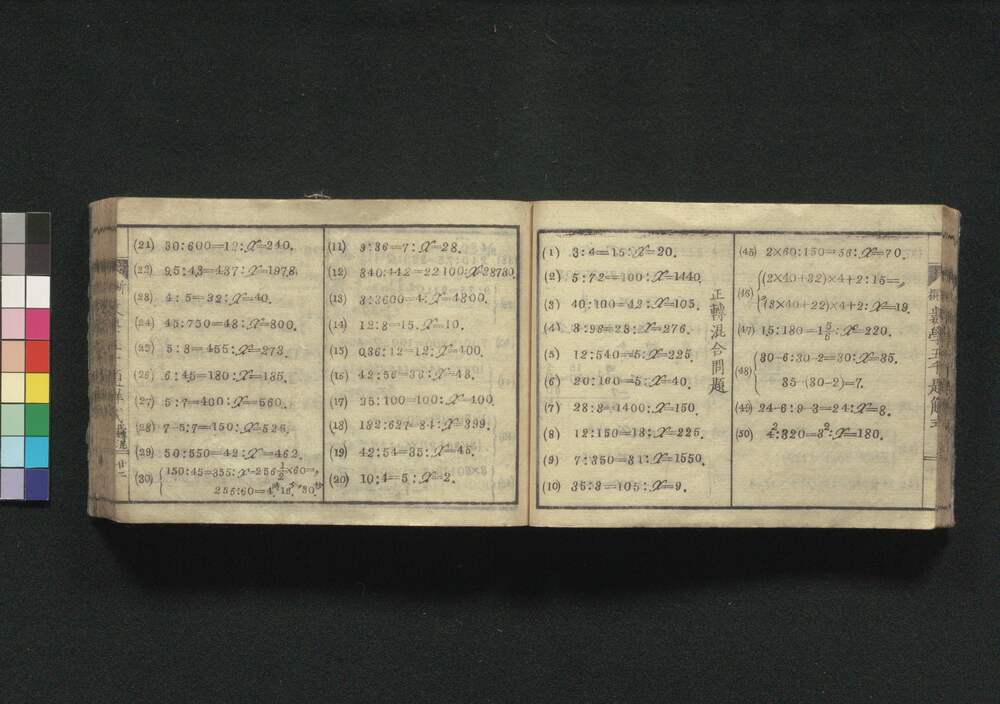 數學五千題解五
(45) 2×60:150=56:x=70.
(46) {(2×40+32)×4+2:15=,
(3×40+22)×4+2:x=19.
(47) 15:180=1 3/5:x=220.
(48) {30-6:30-2=30:x=35.
35-(30-2)=7.
(49) 24-6:9-3=24:x=8.
(50) 4²:320=3²:x=180.
正轉混合問題
(1) 3:4=15:x=20.
(2) 5:72=100:x=1440.
(3) 40:100=42:x=105.
(4) 8:98=28:x=276.
(5) 12:540=5:x=225.
(6) 20:160=5:x=40.
(7) 28:3=1400:x=150.
(8) 12:150=18:x=225.
(9) 7:350=31:x=1550.
(10) 35:3=105:x=9.
(11) 9:36=7:x=28.
(12) 340:442=22100:x=28730.
(13) 3:3600=4:x=4800.
(14) 12:8=15:x=10.
(15) 0.36:12=12:x=400.
(16) 42:56=36:x=48.
(17) 25:100=100:x=400.
(18) 132:627=84:x=399.
(19) 42:54=35:x=45.
(20) 10:4=5:x=2.
(21) 30:600=12:x=240.
(22) 9.5:4.3=437:x=197.8.
(23) 4:5=32:x=40.
(24) 45:750=48:x=800.
(25) 5:3=455:x=273.
(26) 6:45=180:x=135.
(27) 5:7=400:x=560.
(28) 7-5:7=150:x=525.
(29) 50:550=42:x=462.
(30) {150:45=355:x=256 1/2×60=,
256:60=4時16分30秒.